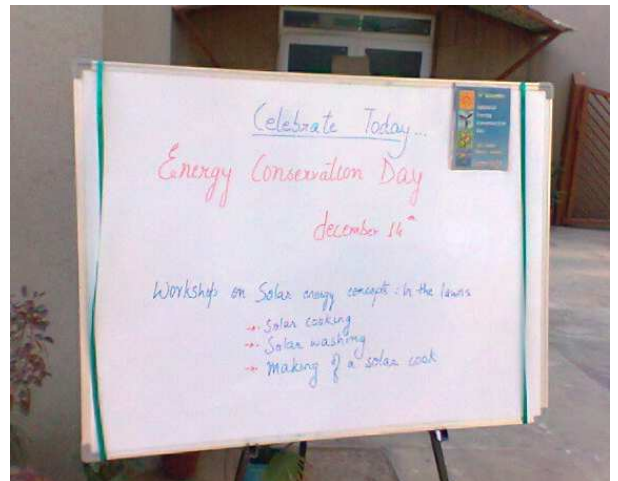 Celebrate Today...
Energy Conservation Day
december 14th
Workshop on Solar energy concepts : In the lawns
→ Solar cooking
→ Solar washing
→ Making of a solar cook
Energy
Conservation